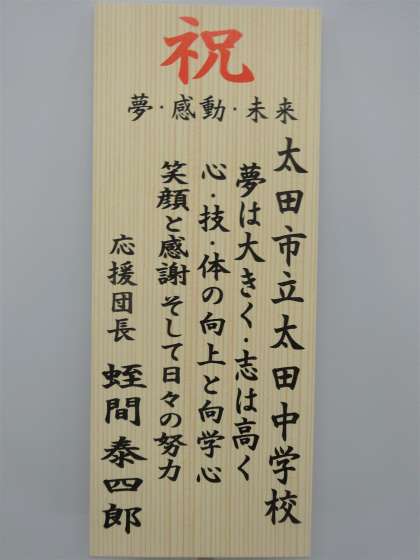 祝
夢・感動・未来
太田市立太田中学校
夢は大きく・志は高く
心・技・体の向上と向学心
笑顔と感謝 そして日々の努力
応援団長 蛭間泰四郎